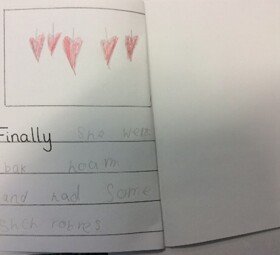 Finally She went
bak hoam
and had some